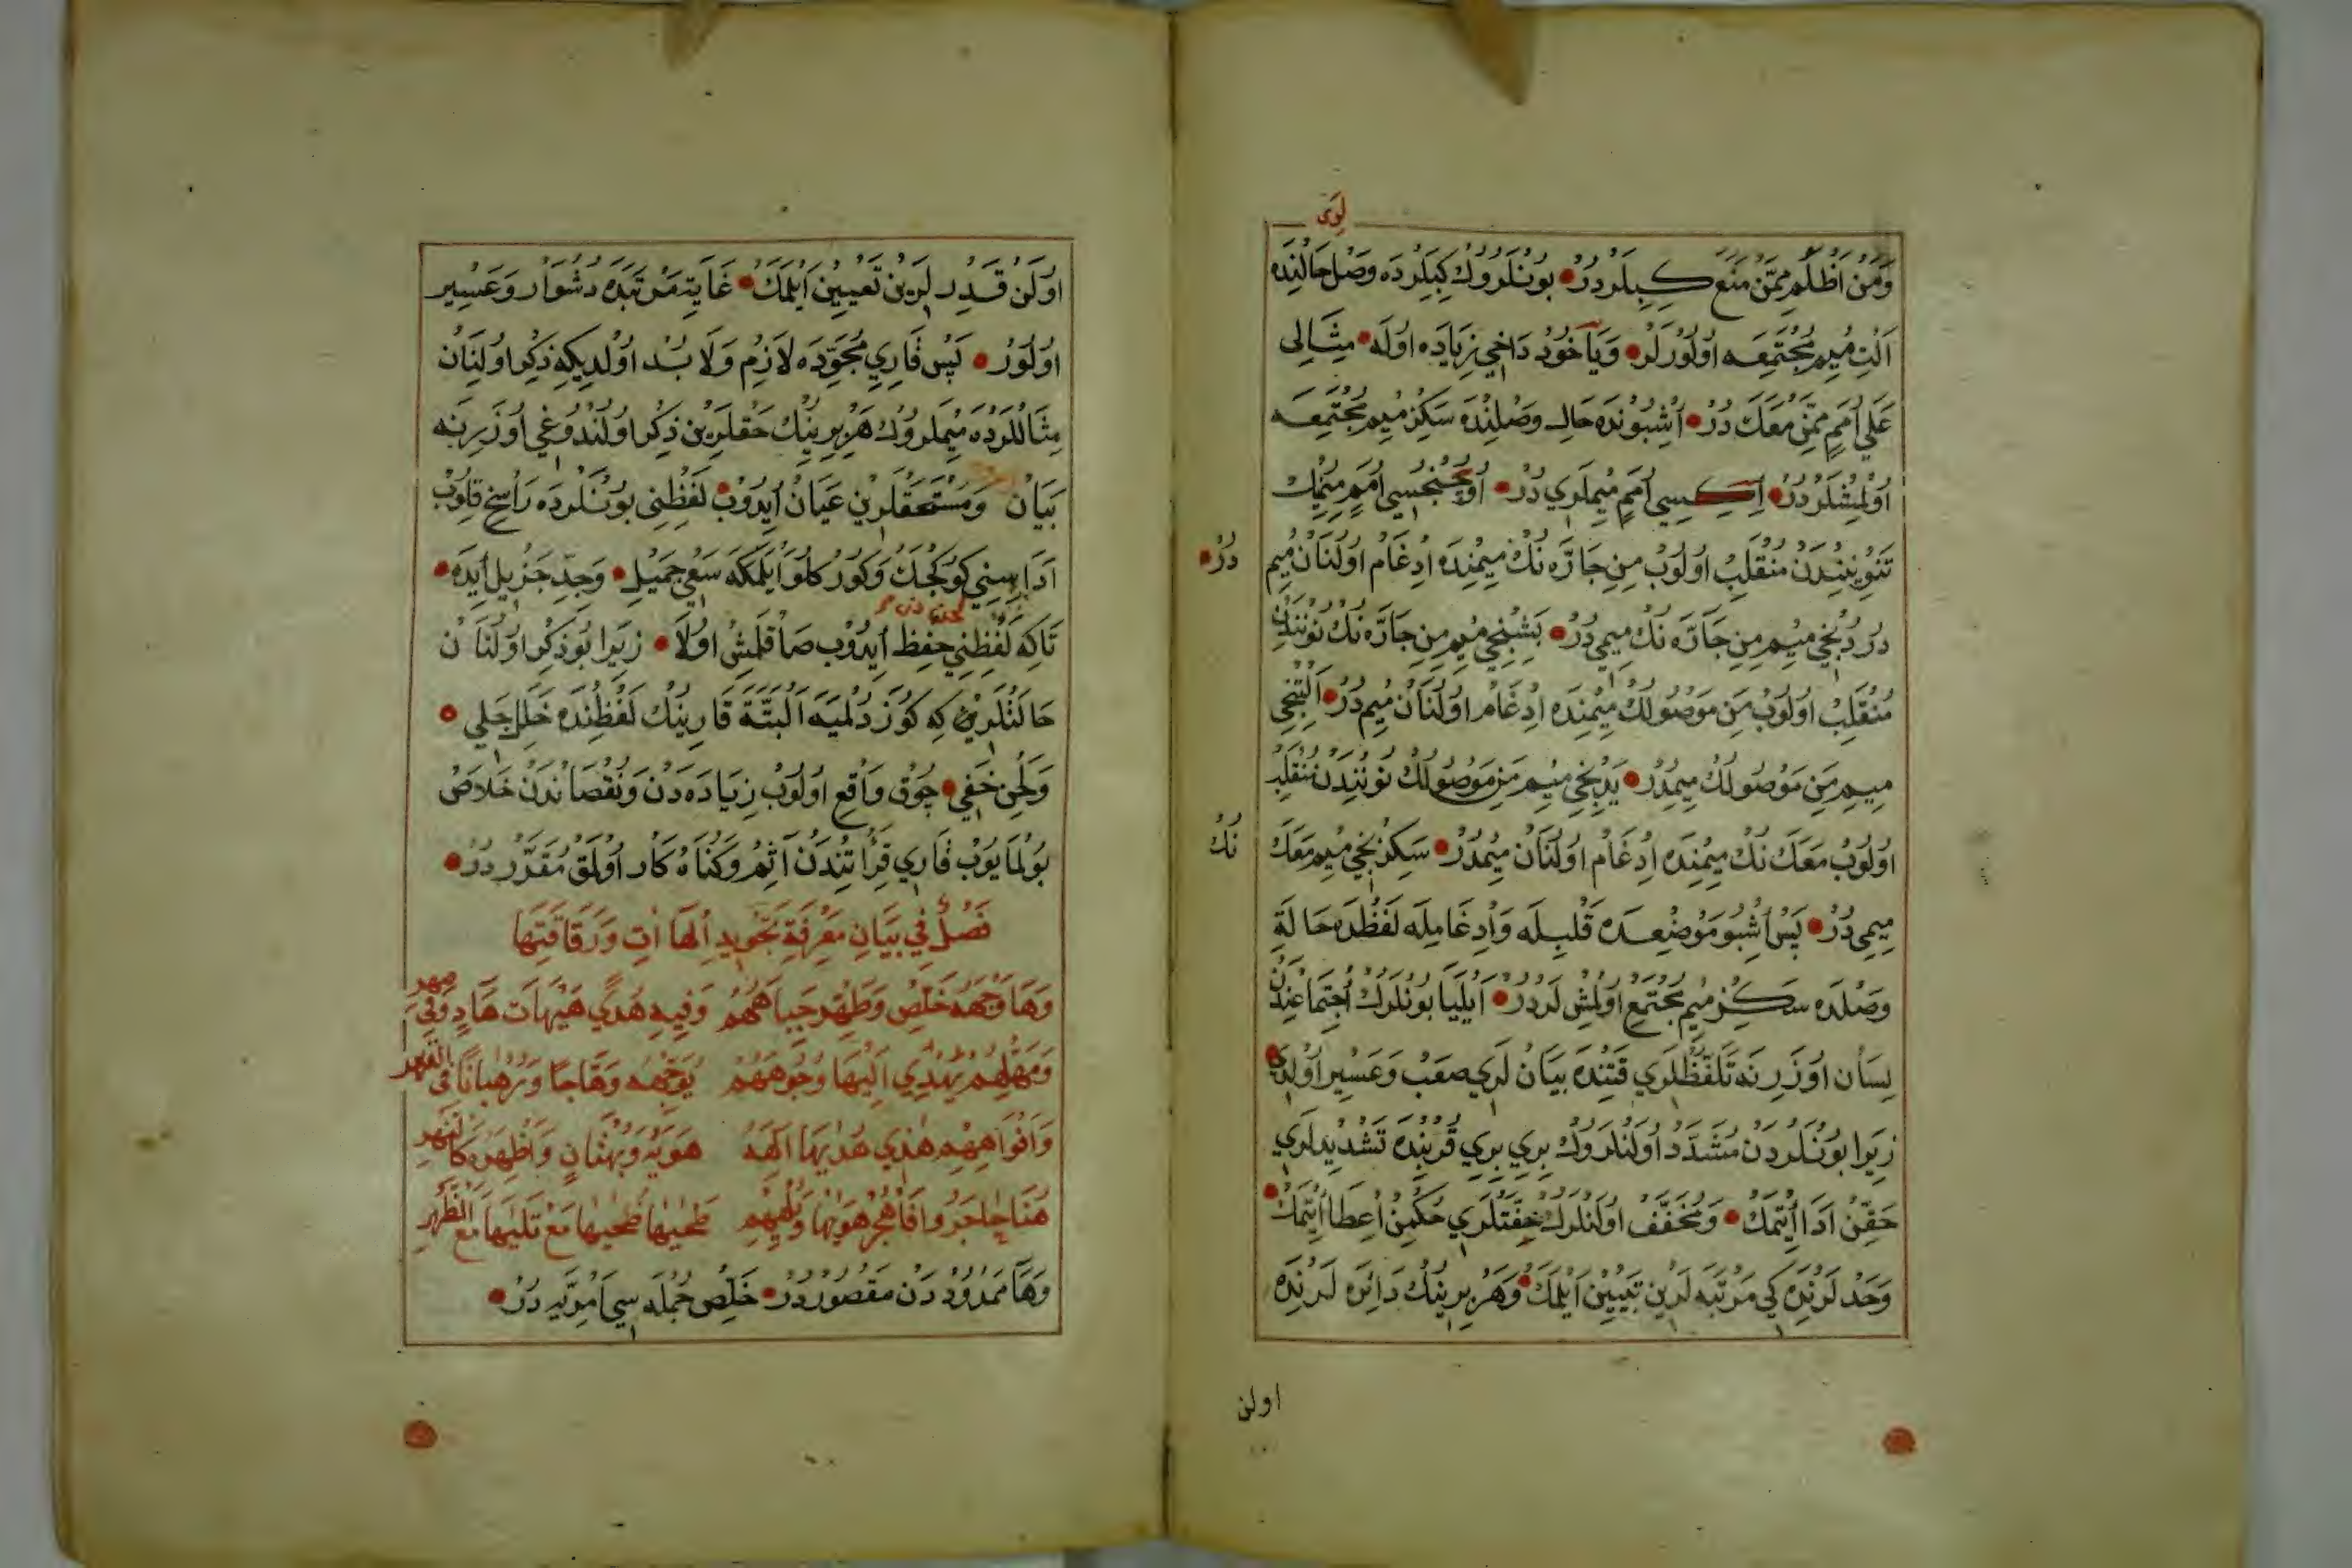 لوى
وَمَنْ اَظْلَمُ مِمَّنْ مَنَعَ كِبِيلَرْدُرْ بُونْلَرُوكْ كِبِيلَرْدَه وَصْل حَالِنْدَه
اَلْتِ مِيم مُجْتَمِعَه اُولُورْلَرْ وَيَاخُودْ دَاخِي زِيَادَه اُولَه مِثَالِى
عَلَي اُمَمٍ مِمَّنْ مَعَكَ دُرْ اُشْبُونْدَه حَالِ وَصْلِنْدَه سَكِزْ مِيم مُجْتَمِعَه
اُولْمِشْلَرْدُرْ اِيكِيسِي اُمَمٍ مِيمْلَرِي دُرْ اُوچُنْجِسِي اُمَمٍ مِيمِنُكْ
تَنْوِينِنْدَنْ مُنْقَلِبْ اُولُوبْ مِنِ جَارَّه نُكْ مِيمِنْدَه اِدْغَامْ اُولُنَانْ مِيم
دُرْ
دُرْدُنْجِي مِيم مِنِ جَارَّه نُكْ مِيمِي دُرْ بَشِنْجِي مِيم مِنِ جَارَّه نُكْ نُونُنْدَنْ
مُنْقَلِبْ اُولُوبْ مَنِ مَوْصُولُكْ مِيمِنْدَه اِدْغَامْ اُولُنَانْ مِيم دُرْ اَلْتِنْجِي
مِيم مَنِ مَوْصُولُكْ مِيمِدُرْ يَدِنْجِي مِيم مَنِ مَوْصُولُكْ نُونُنْدَنْ مُنْقَلِبْ
اُولُوبْ مَعَكَ نُكْ مِيمِنْدَه اِدْغَامْ اُولُنَانْ مِيمِدُرْ سَكِزِنْجِي مِيم مَعَكَ
نُكْ
مِيمِي دُرْ پَسْ اُشْبُو مَوْضِعِدَه قَلْبِلَه وَاِدْغَامِلَه لَفْظْدَه حَالَةِ
وَصْلَدَه سَكِزْ مِيم مُجْتَمِعْ اُولْمِشْ لَرْدُرْ اَيْلَيَا بُونْلَرُكْ اِجْتِمَاعِنْدَنْ
لِسَانْ اُوزَرِنَه تَلَفُّظْلَرِي قَتِنْدَه بَيَانْ لَرِي صَعْبْ وَعَسِيرْ اُولْدِي
زِيرَا بُونْلَرْدَنْ مُشَدَّدْ اُولَنْلَرُوكْ بِرِي بِرِي قُرْبِنْدَه تَشْدِيدْلَرِي
حَقِّنْ اَدَا اِتْمَكْ وَمُخَفَّفْ اُولَنْلَرُكْ خِفَّتْلَرِي حُكْمِنْ اِعْطَا اِتْمَكْ
وَحَدْ لَرِنْدَه كِي مَرْتَبَه لَرِينْ تَبْيِينْ اَيْلَمَكْ وَهَرْ بِرِينُكْ دَائِرَه لَرِنْدَه
اولن
اُولَنْ قَدْرْ لَرِينْ تَعْيِينْ اَيْلَمَكْ غَايَتِ مَرْتَبَه دَه دُشْوَارْ وَعَسِيرْ
اُولُورْ پَسْ قَارِئِ مُجَوِّدَه لَازِمْ وَلَا بُدْ اُولْدِيكِه ذِكْرْ اُولُنَانْ
مِثَاللَّرْدَه مِيمْلَرُوكْ هَرْ بِرِينُكْ حَقْلَرِينْ ذِكْرْ اُولُنْدُوغِي اُوزَرِينَه
بَيَانْ وَمُسْتَحَقْلَرِينْ عَيَانْ اِيدُوبْ لَفْظِنِى بُونْلَرْدَه رَاسِخْ قِلُوبْ
اَدَاسِنِي كُوكْچَكْ وَكُورْكْلُو اَيْلَمَكَه سَعْيِ جَمِيلْ وَجِدِّ جَزِيلْ اِيدَه
تَاكِه لَفْظِنِي حِفْظْ اِيدُوبْ صَاقْلَمِشْ اُولَا زِيرَا بُو ذِكْرْ اُولُنَانْ
حَالَتْلَرِينْ كِه كُوزَدِلْمَيَه اَلْبَتَّة قَارِينُكْ لَفْظِنْدَه خَلَلِ جَلِي
وَلَحْنِ خَفِي چُوقْ وَاقِعْ اُولُوبْ زِيَادَه دَنْ وَنُقْصَانْدَنْ خَلَاصْ
بُولْمَايُوبْ قَارِي قِرَائَتِنْدَنْ آثِمْ وَكُنَاهْ كَارْ اُولْمَقْ مُقَرَّرْدُرْ
فَصْلٌ فِي بَيَانِ مَعْرِفَةِ تَجْوِيدِ الْهَاآتِ وَرَقَاقَتِهَا
وَهَا وَجْهَهُ خَلِّصْ وَطَهِّرْ جِبَاهَهُمْ وَفِيهِ هُدًي هَيْهَاتَ هَادٍ وَفِي
مهر
يَهْدِي اِلَيْهَا وُجُوهَهُمْ يُوَجِّهْهُ وَهَّاجًا وَرُهْبَانًا فِى
القهر
وَاَفْوَاهِهِمْ هٰذِي هُدٰيهَا اِلٰهَهُ هَوَيْهِ وَبُهْتَانٍ وَاَظْهَرَهُ كَالنَّهْرِ
ضُحٰيهَا مَعْ تَلٰيهَا مَعَ الظَّهْرِ
وَهَا مَمْدُودْ دَنْ مَقْصُورْدُرْ خَلِّصْ جُمْلَه سِي اَمْرِيَّه دُرْ